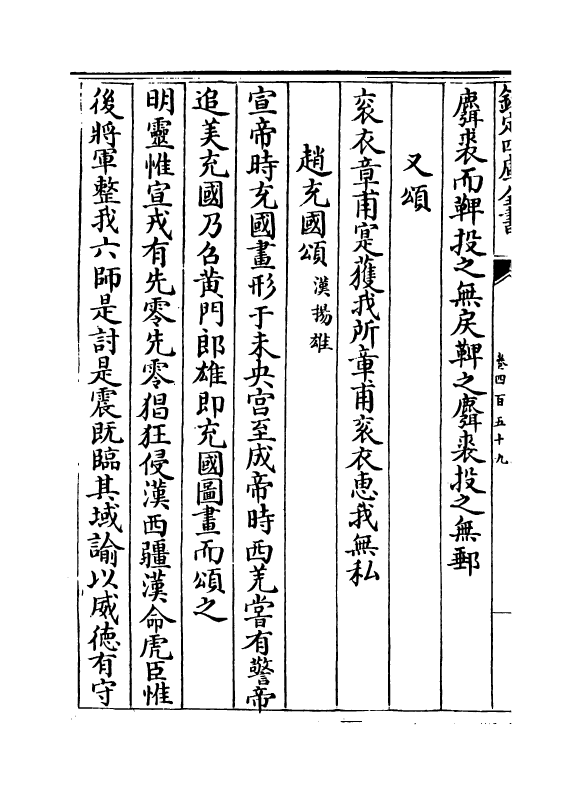 欽定四庫全書
卷四百五十九
麛裘而鞞投之無戾鞞之麛裘投之無郵
又頌
衮衣章甫寔獲我所章甫衮衣惠我無私
趙充國頌 漢揚雄
宣帝時充國畫形于未央宫至成帝時西羌嘗有警帝
追美充國乃召黄門郎雄即充國圖畫而頌之
明靈惟宣戎有先零先零猖狂侵漢西疆漢命虎臣惟
後將軍整我六師是討是震既臨其域諭以威德有守